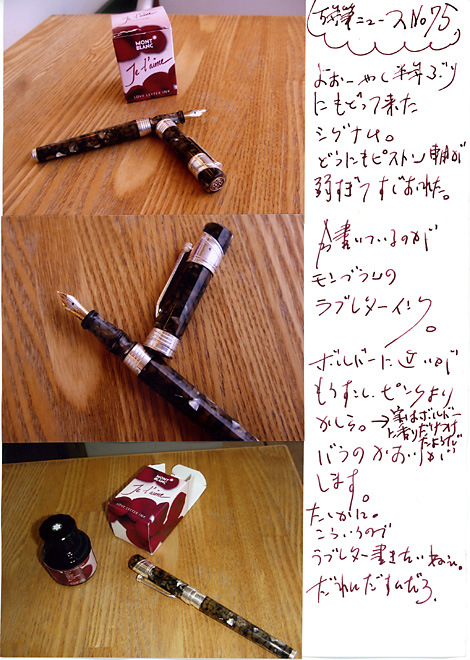 MONT
BLANC
Je t'aime
LOVE LETTER INK
MONT
BLANC
Je t'aime
LOVE LETTER INK
万年筆ニュースNo75
よおーやく半年ぶり
にもどって来た
シグナム。
どうにもピストン が
弱すぎてすぐおれた。
今書いているのが
モンブランの
ラブレターインク。
ボルドーに近いが
もうすこし ピンクより
かしら。→実はボルドー
に香りだけつけ
バラのかおりが
します。
たしかに。
こういうので
ラブレター書きたいねぇ。
だれにだすんだろ。